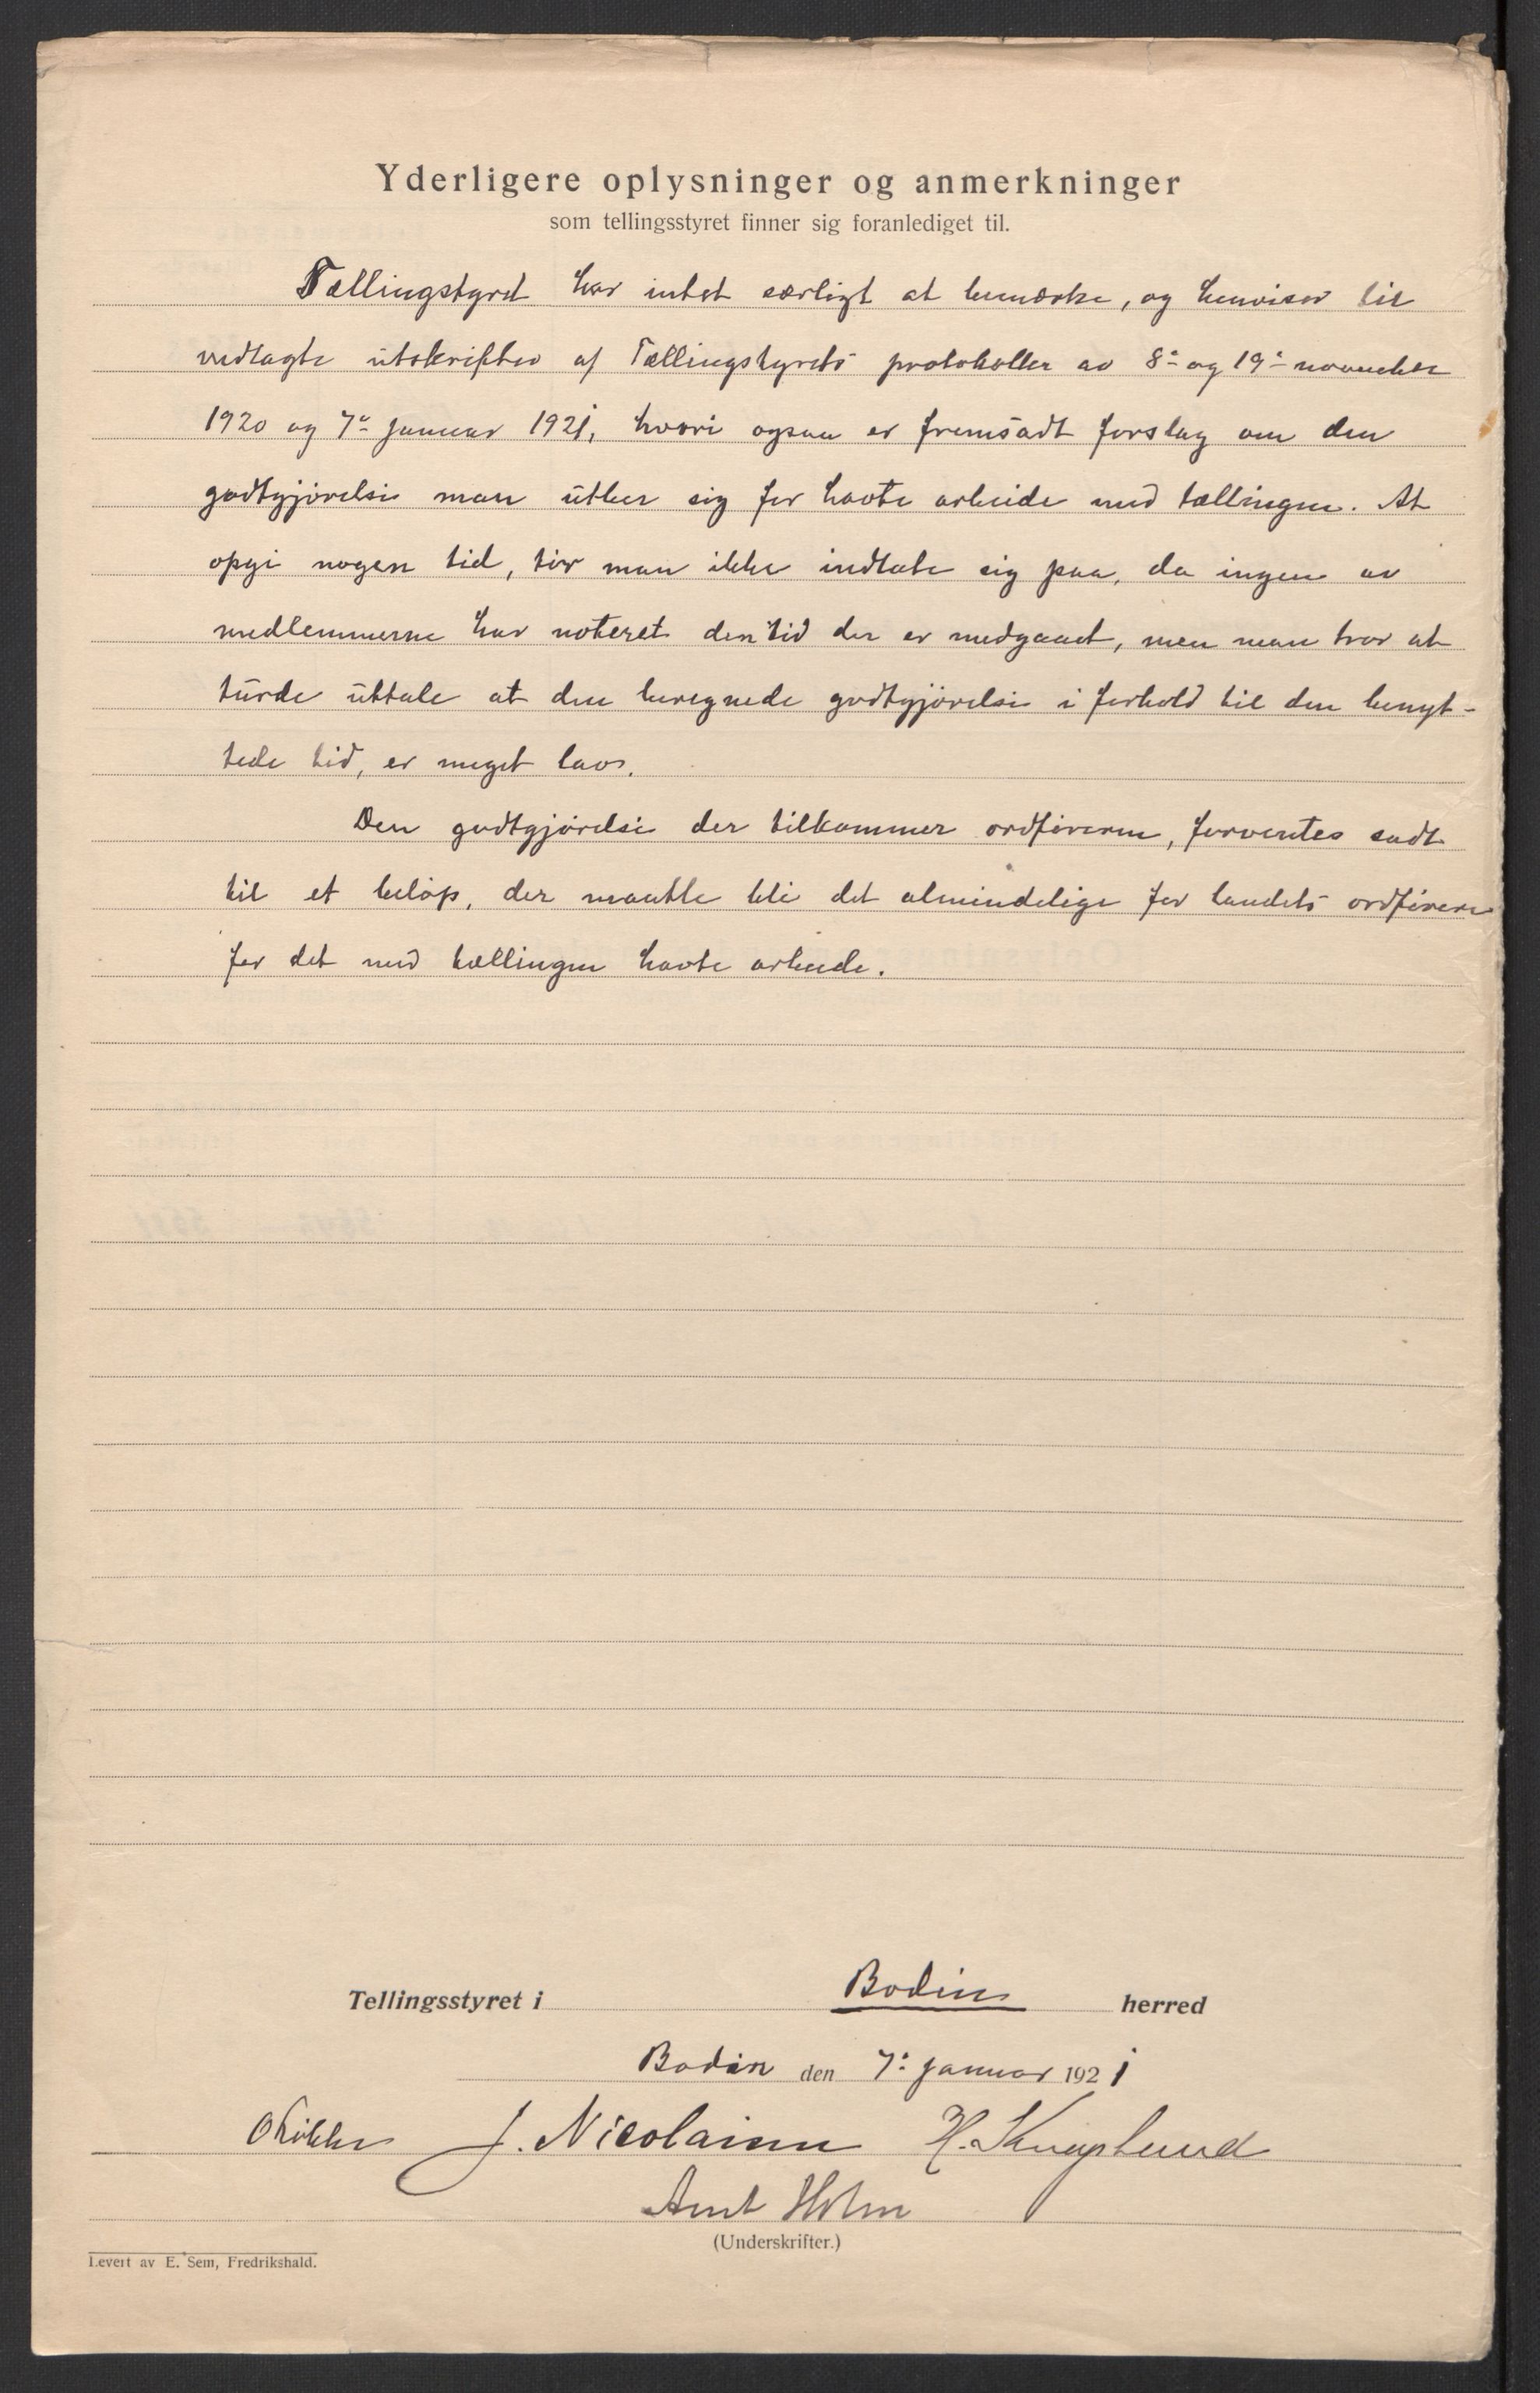 Yderligere oplysninger og anmerkninger
som tellingsstyret finner sig foranlediget til.
Tællingstyret har intet særligt at bemærke, og henviser til
vedlagte utskrifter af Tællingstyrets protokoller av 8de og 19de november
1920 og 7de januar 1921, hvori ogsaa er fremsadt forslag om den
godtgjörelse man utber sig for havte arbeide med tællingen. At
opgi nogen tid, tör man ikke indlate sig paa, da ingen av
medlemmerne har noteret den tid der er medgaaet, men man tror at
turde uttale at den beregnede godtgjörelse i forhold til den benyt-
tede tid, er meget lav.
Den godtgjörelse der tilkommer ordföreren, forventes sadt
til et belöp, der maatte bli det almindelige for landets ordförere
for det med tællingen havte arbeide.
Tellingsstyret i Bodin herred
Bodin den 7de januar 1921
J. Nicolaisen H. Knaplund
Arnt Holm
(Underskrifter.)
Levert av E. Sem, Fredrikshald.